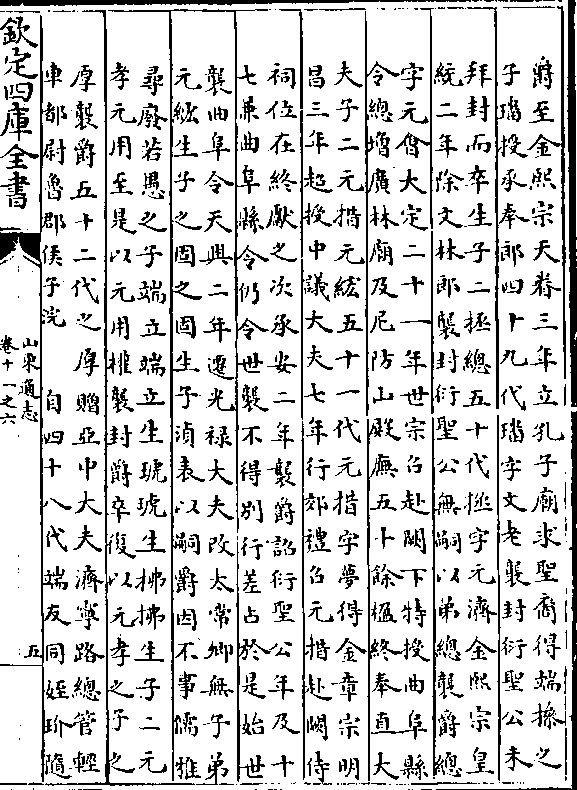 爵至金熙宗天眷三年立孔子廟求聖裔得端操之
子璠授承奉郎四十九代璠字文老襲封衍聖公未
拜封而卒生子二拯總五十代拯字元濟金熙宗皇
統二年除文林郎襲封衍聖公無嗣以弟總襲爵總
字元㑹大定二十一年世宗召赴闕下特授曲阜縣
令總增廣林廟及尼防山殿廡五十餘楹終奉直大
夫子二元措元紘五十一代元措字夢得金章宗明
昌三年超授中議大夫七年行郊禮召元措赴闕侍
祠位在終獻之次承安二年襲爵詔衍聖公年及十
七兼曲阜縣令仍令世襲不得別行差占於是始世
襲曲阜令天興二年遷光祿大夫改太常卿無子弟
元紘生子之固之固生子湞表以嗣爵因不事儒雅
尋廢若愚之子端立端立生琥琥生拂拂生子二元
孝元用至是以元用權襲封爵卒復以元孝之子之
厚襲爵五十二代之厚贈亞中大夫濟寧路總管輕
車都尉魯郡侯子浣　自四十八代端友同姪玠隨
欽定四庫全書
山東通志
卷十一之六
五